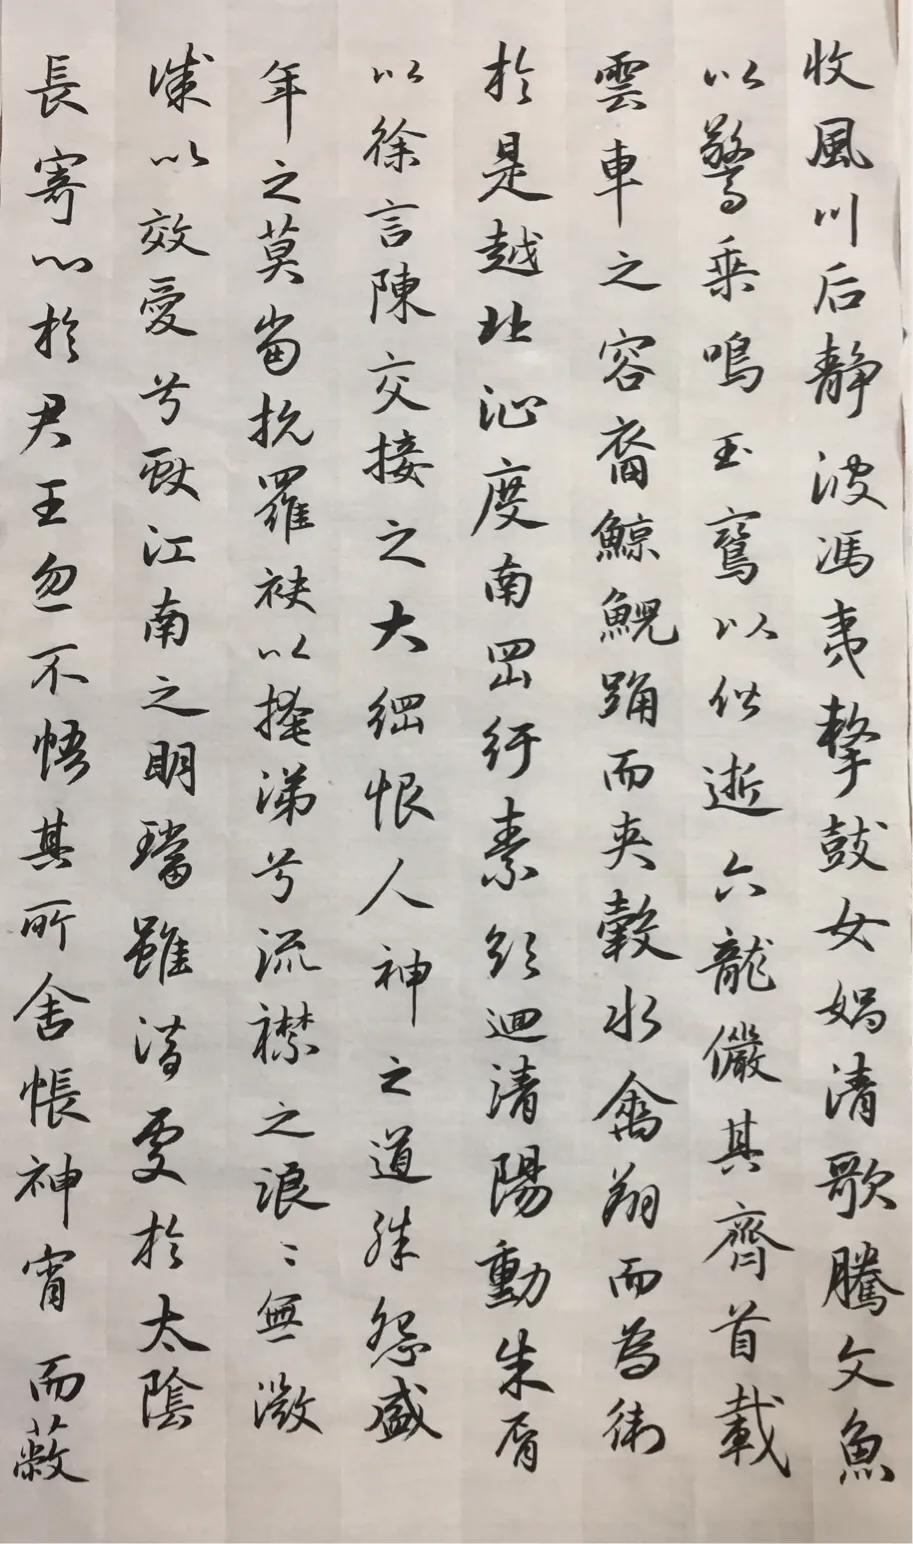 收風川后静波馮夷擊鼓女媧清歌騰文魚
以驚乘鳴玉鸞以偕逝六龍儼其齊首載
雲車之容裔鯨鯢踊而夾轂水禽翔而為衛
於是越北沚度南岡紆素領迴清陽動朱脣
以徐言陳交接之大綱恨人神之道殊怨盛
年之莫當抗羅袂以掩涕兮流襟之浪〻無微
情以效愛兮獻江南之明璫雖潛處於太陰
長寄心於君王忽不悟其所舍悵神宵而蔽